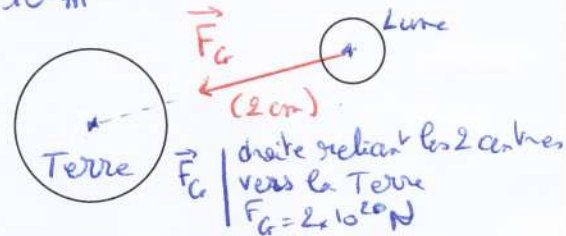 10 m
F_G
Lune
(2 cm)
Terre
F_G
droite reliant les 2 centres
vers la Terre
F_G = 2 x 10^20 N